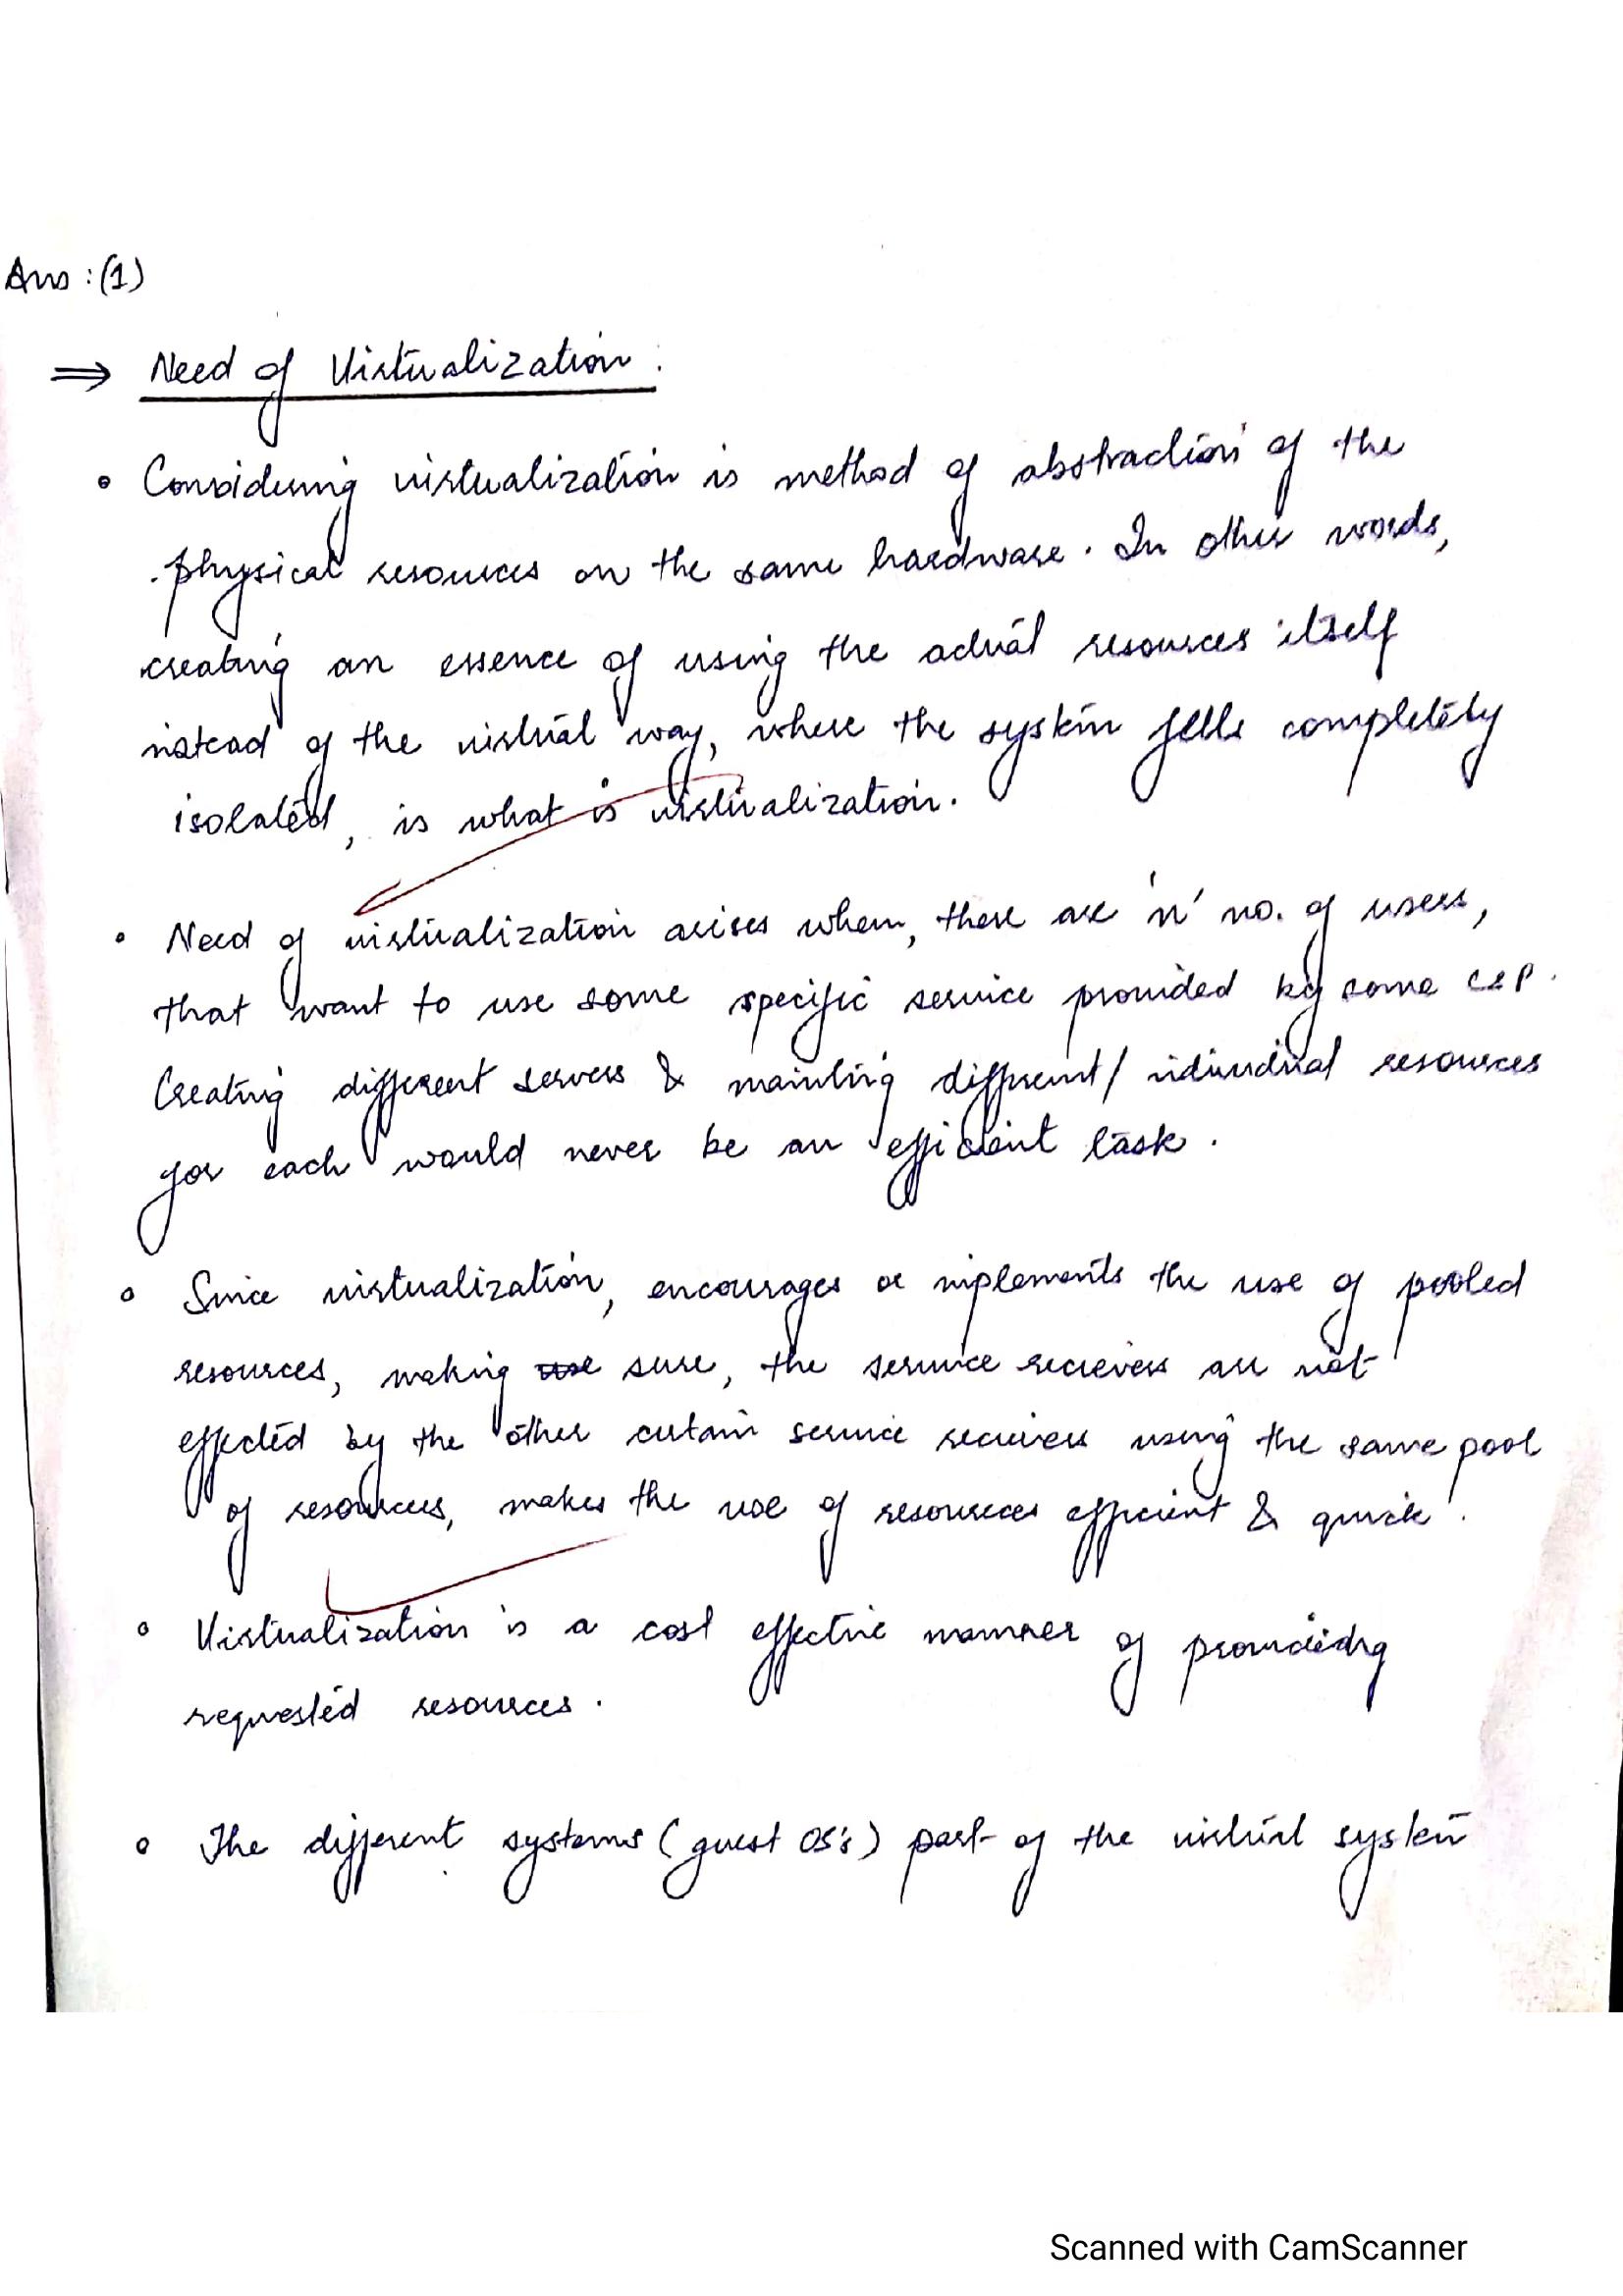 Ans :(1)
⇒ Need of Virtualization :
• Considering virtualization is method of abstraction of the
physical resources on the same hardware. In other words,
creating an essence of using the actual resources itself
instead of the virtual way, where the system feels completely
isolated, is what is virtualization.
• Need of virtualization arises when, there are 'n' no. of users,
that want to use some specific service provided by some CSP.
Creating different servers & mainting different/ individual resources
for each would never be an efficient task.
• Since virtualization, encourages or implements the use of pooled
resources, making use sure, the service recievers are not
effected by the other certain service recievers using the same pool
of resources, makes the use of resources efficient & quick.
• Virtualization is a cost effective manner of providing
requested resources.
• The different systems (guest OS's) part of the virtual system
Scanned with CamScanner